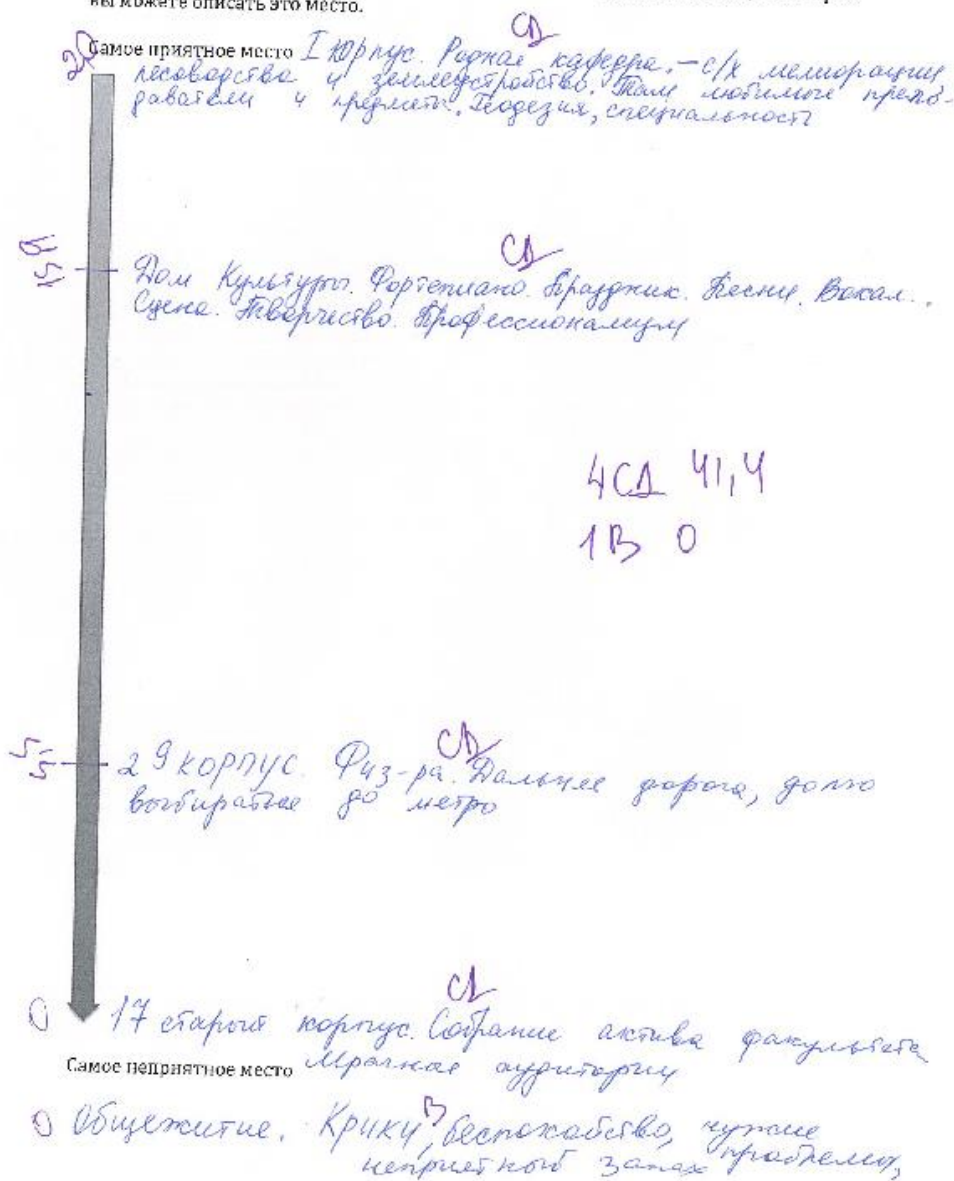 вы можете описать это место.
СД
20 Самое приятное место I корпус. Родная кафедра. – с/х мелиорации,
лесоводства и землеустройство. Там любимые препо-
даватели и предметы. Геодезия, специальность
СД
15,9 Дом Культуры. Фортепиано. Праздник. Песни. Вокал.
Сцена. Творчество. Профессионализм
4СД 41,4
1В 0
СД
5,5 29 корпус. Физ-ра. Дальняя дорога, долго
выбираться до метро
СД
0 17 старый корпус. Собрание актива факультета
Самое неприятное место Мрачная аудитория
В
0 Общежитие. Крики, беспокойство, чужие
неприятный запах проблемы,